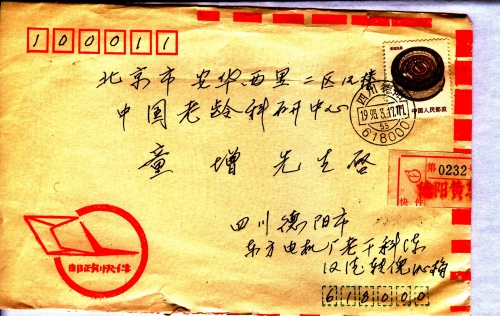 100011
北京市安华西里二区13楼
中国老龄科研中心
童增先生启
中国人民邮政
四川德阳
1993.3.17.17
55
618000
第0232
德阳黄
快件
四川德阳市
东方电机厂老干科陈
汉清转倪沁梅
618000
邮政快件